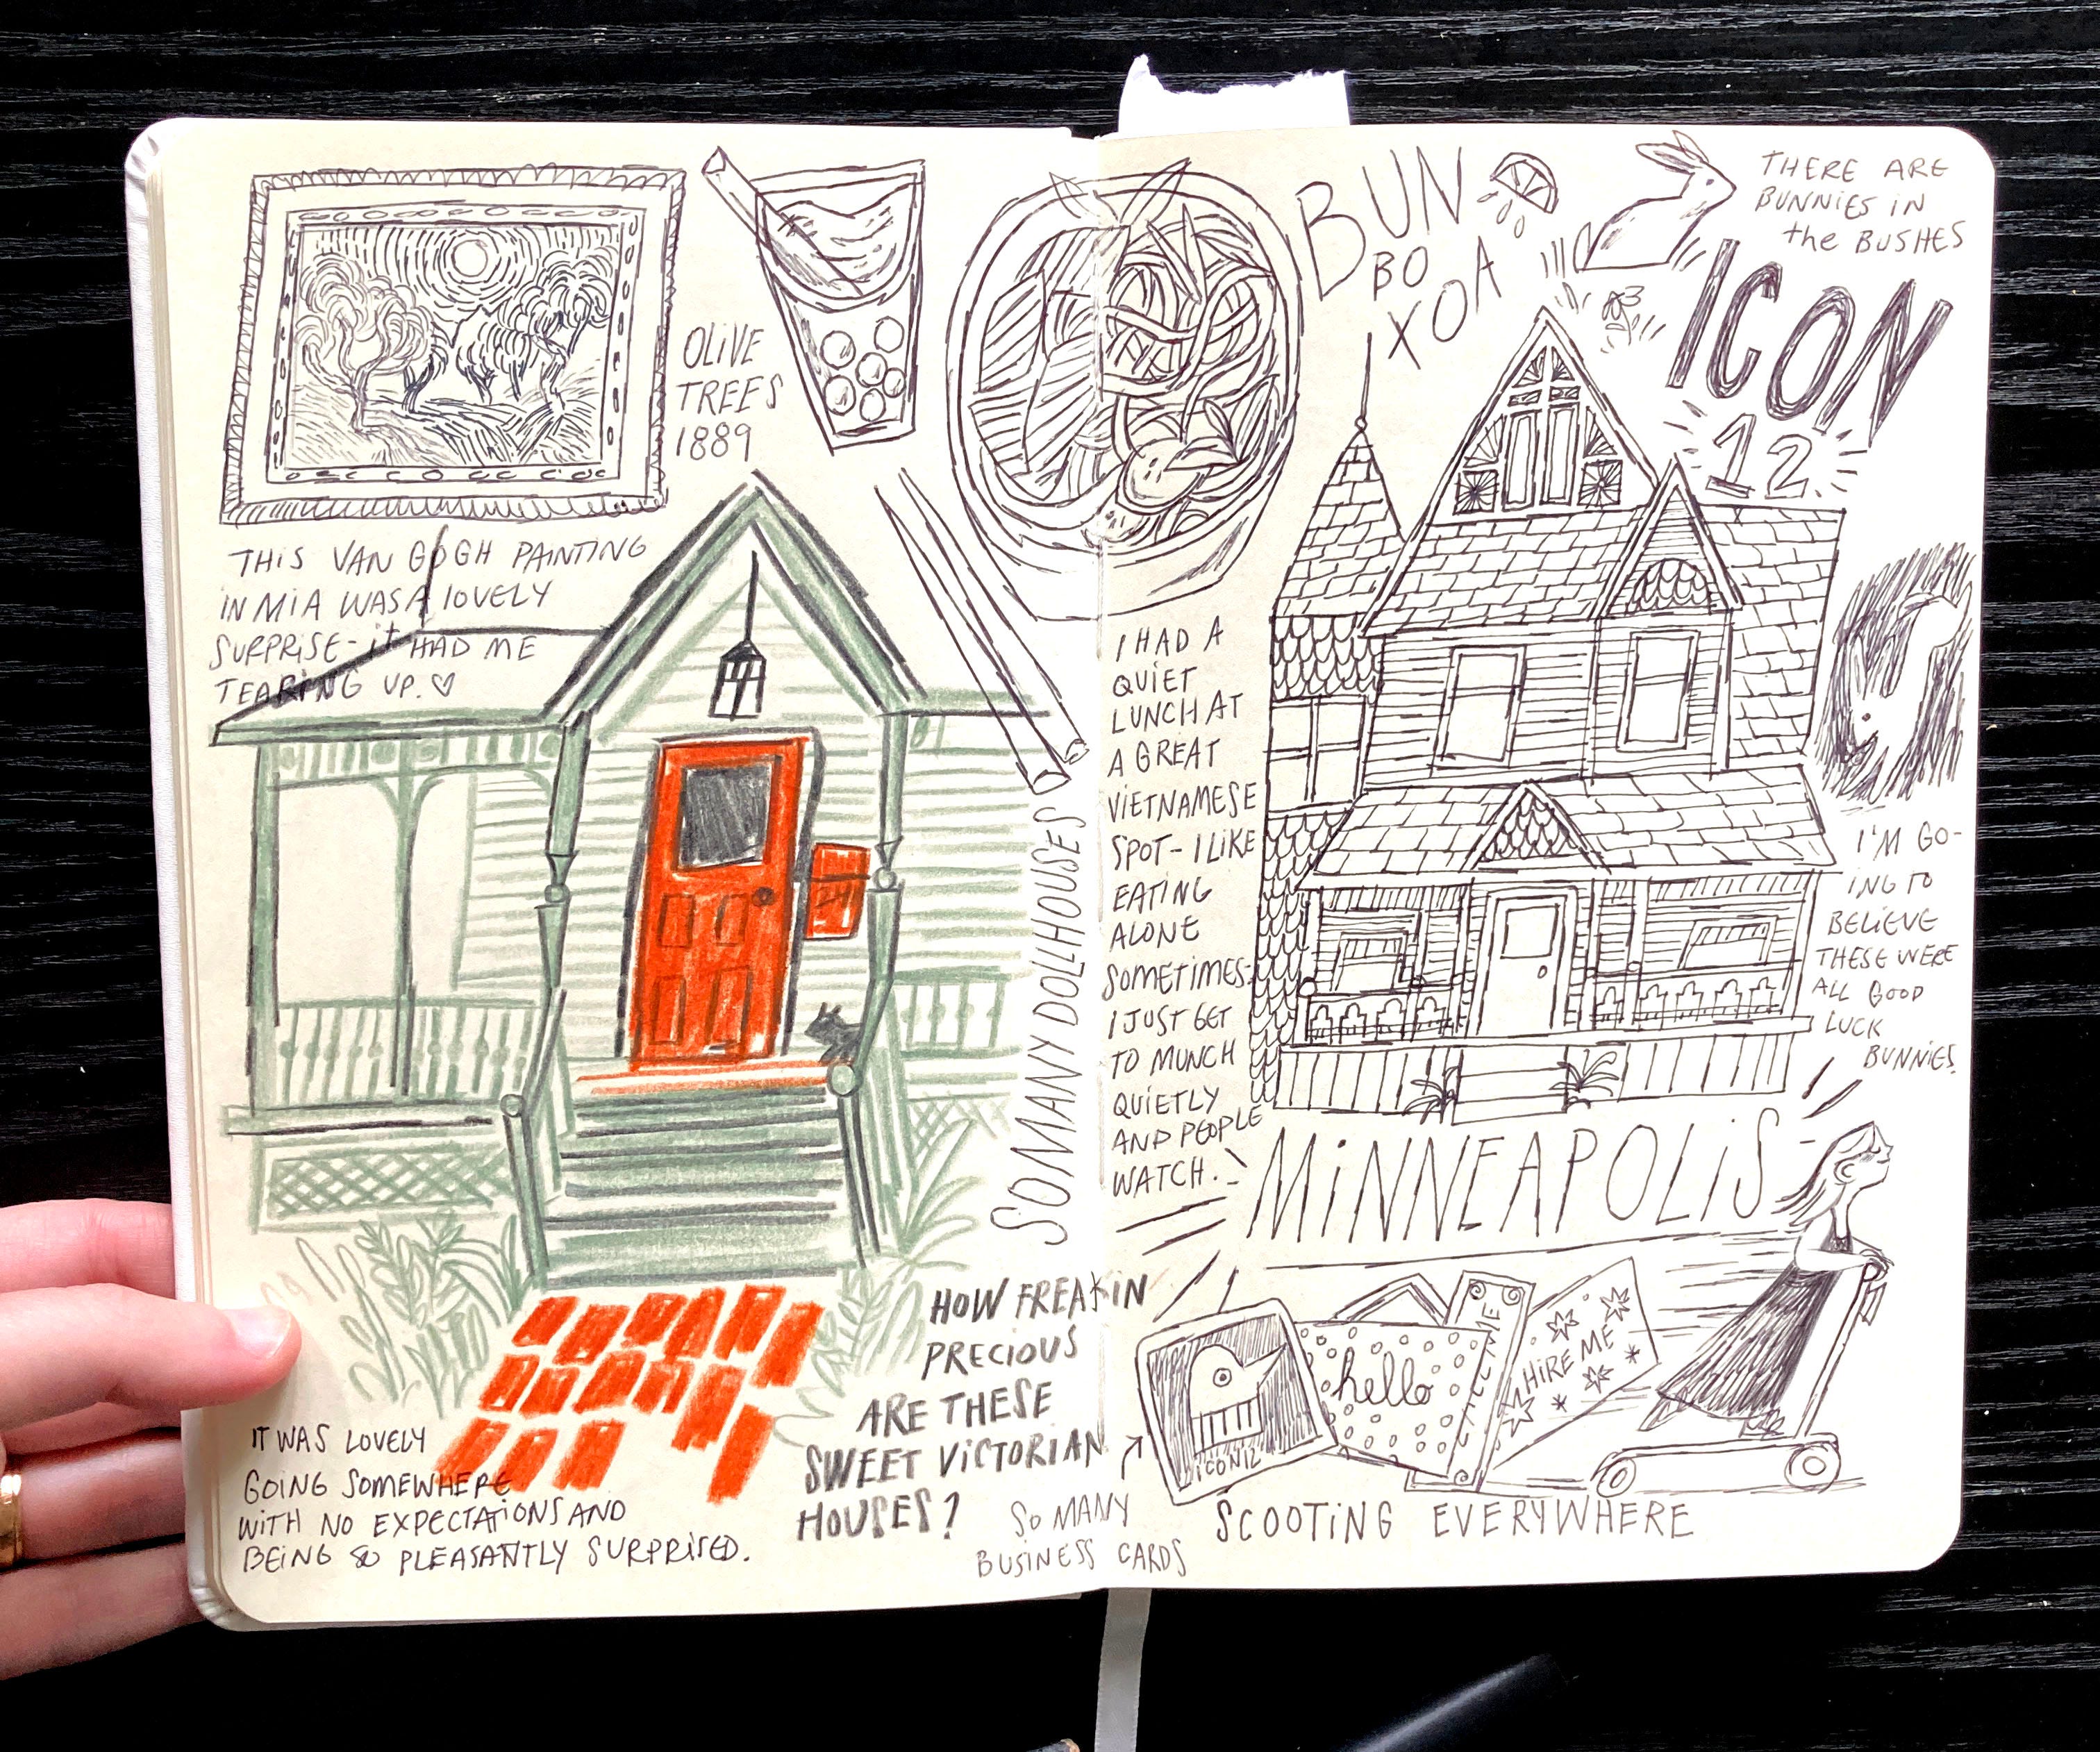 OLIVE
TREES
1889
THIS VAN GOGH PAINTING
IN MIA WAS A LOVELY
SURPRISE - it HAD ME
TEARING UP. ♡
SO MANY DOLLHOUSES
HOW FREAKIN
PRECIOUS
ARE THESE
SWEET VICTORIAN
HOUSES?
IT WAS LOVELY
GOING SOMEWHERE
WITH NO EXPECTATIONS AND
BEING SO PLEASANTLY SURPRISED.
BUN
BO
XOA
THERE ARE
BUNNIES IN
the BUSHES
ICON
12
I HAD A
QUIET
LUNCH AT
A GREAT
VIETNAMESE
SPOT - I LIKE
EATING
ALONE
SOMETIMES-
I JUST GET
TO MUNCH
QUIETLY
AND PEOPLE
WATCH.
I'M GO-
ING TO
BELIEVE
THESE WERE
ALL GOOD
LUCK
BUNNIES.
MINNEAPOLIS
ICON12
hello
HIRE ME
SO MANY
BUSINESS CARDS
SCOOTING EVERYWHERE